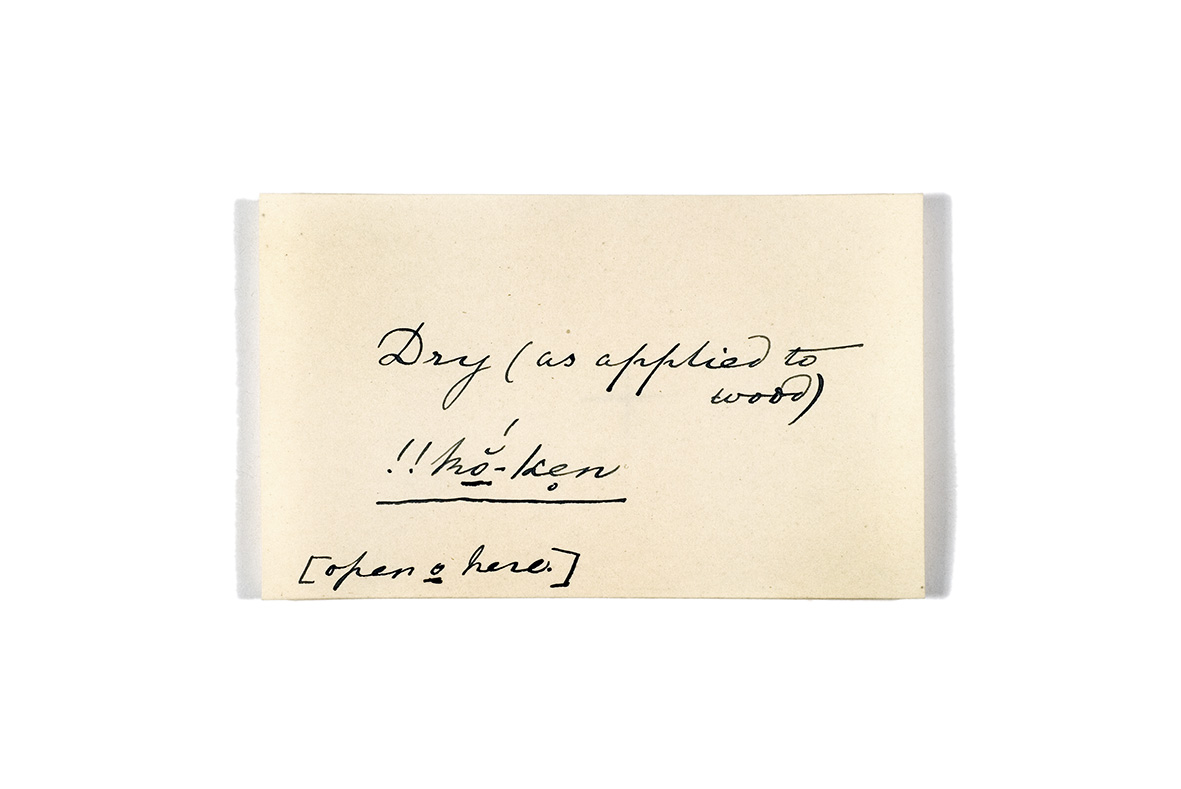 Dry (as applied to
wood)
!!kŏ̱́-ke̥n
[open o̱ here.]